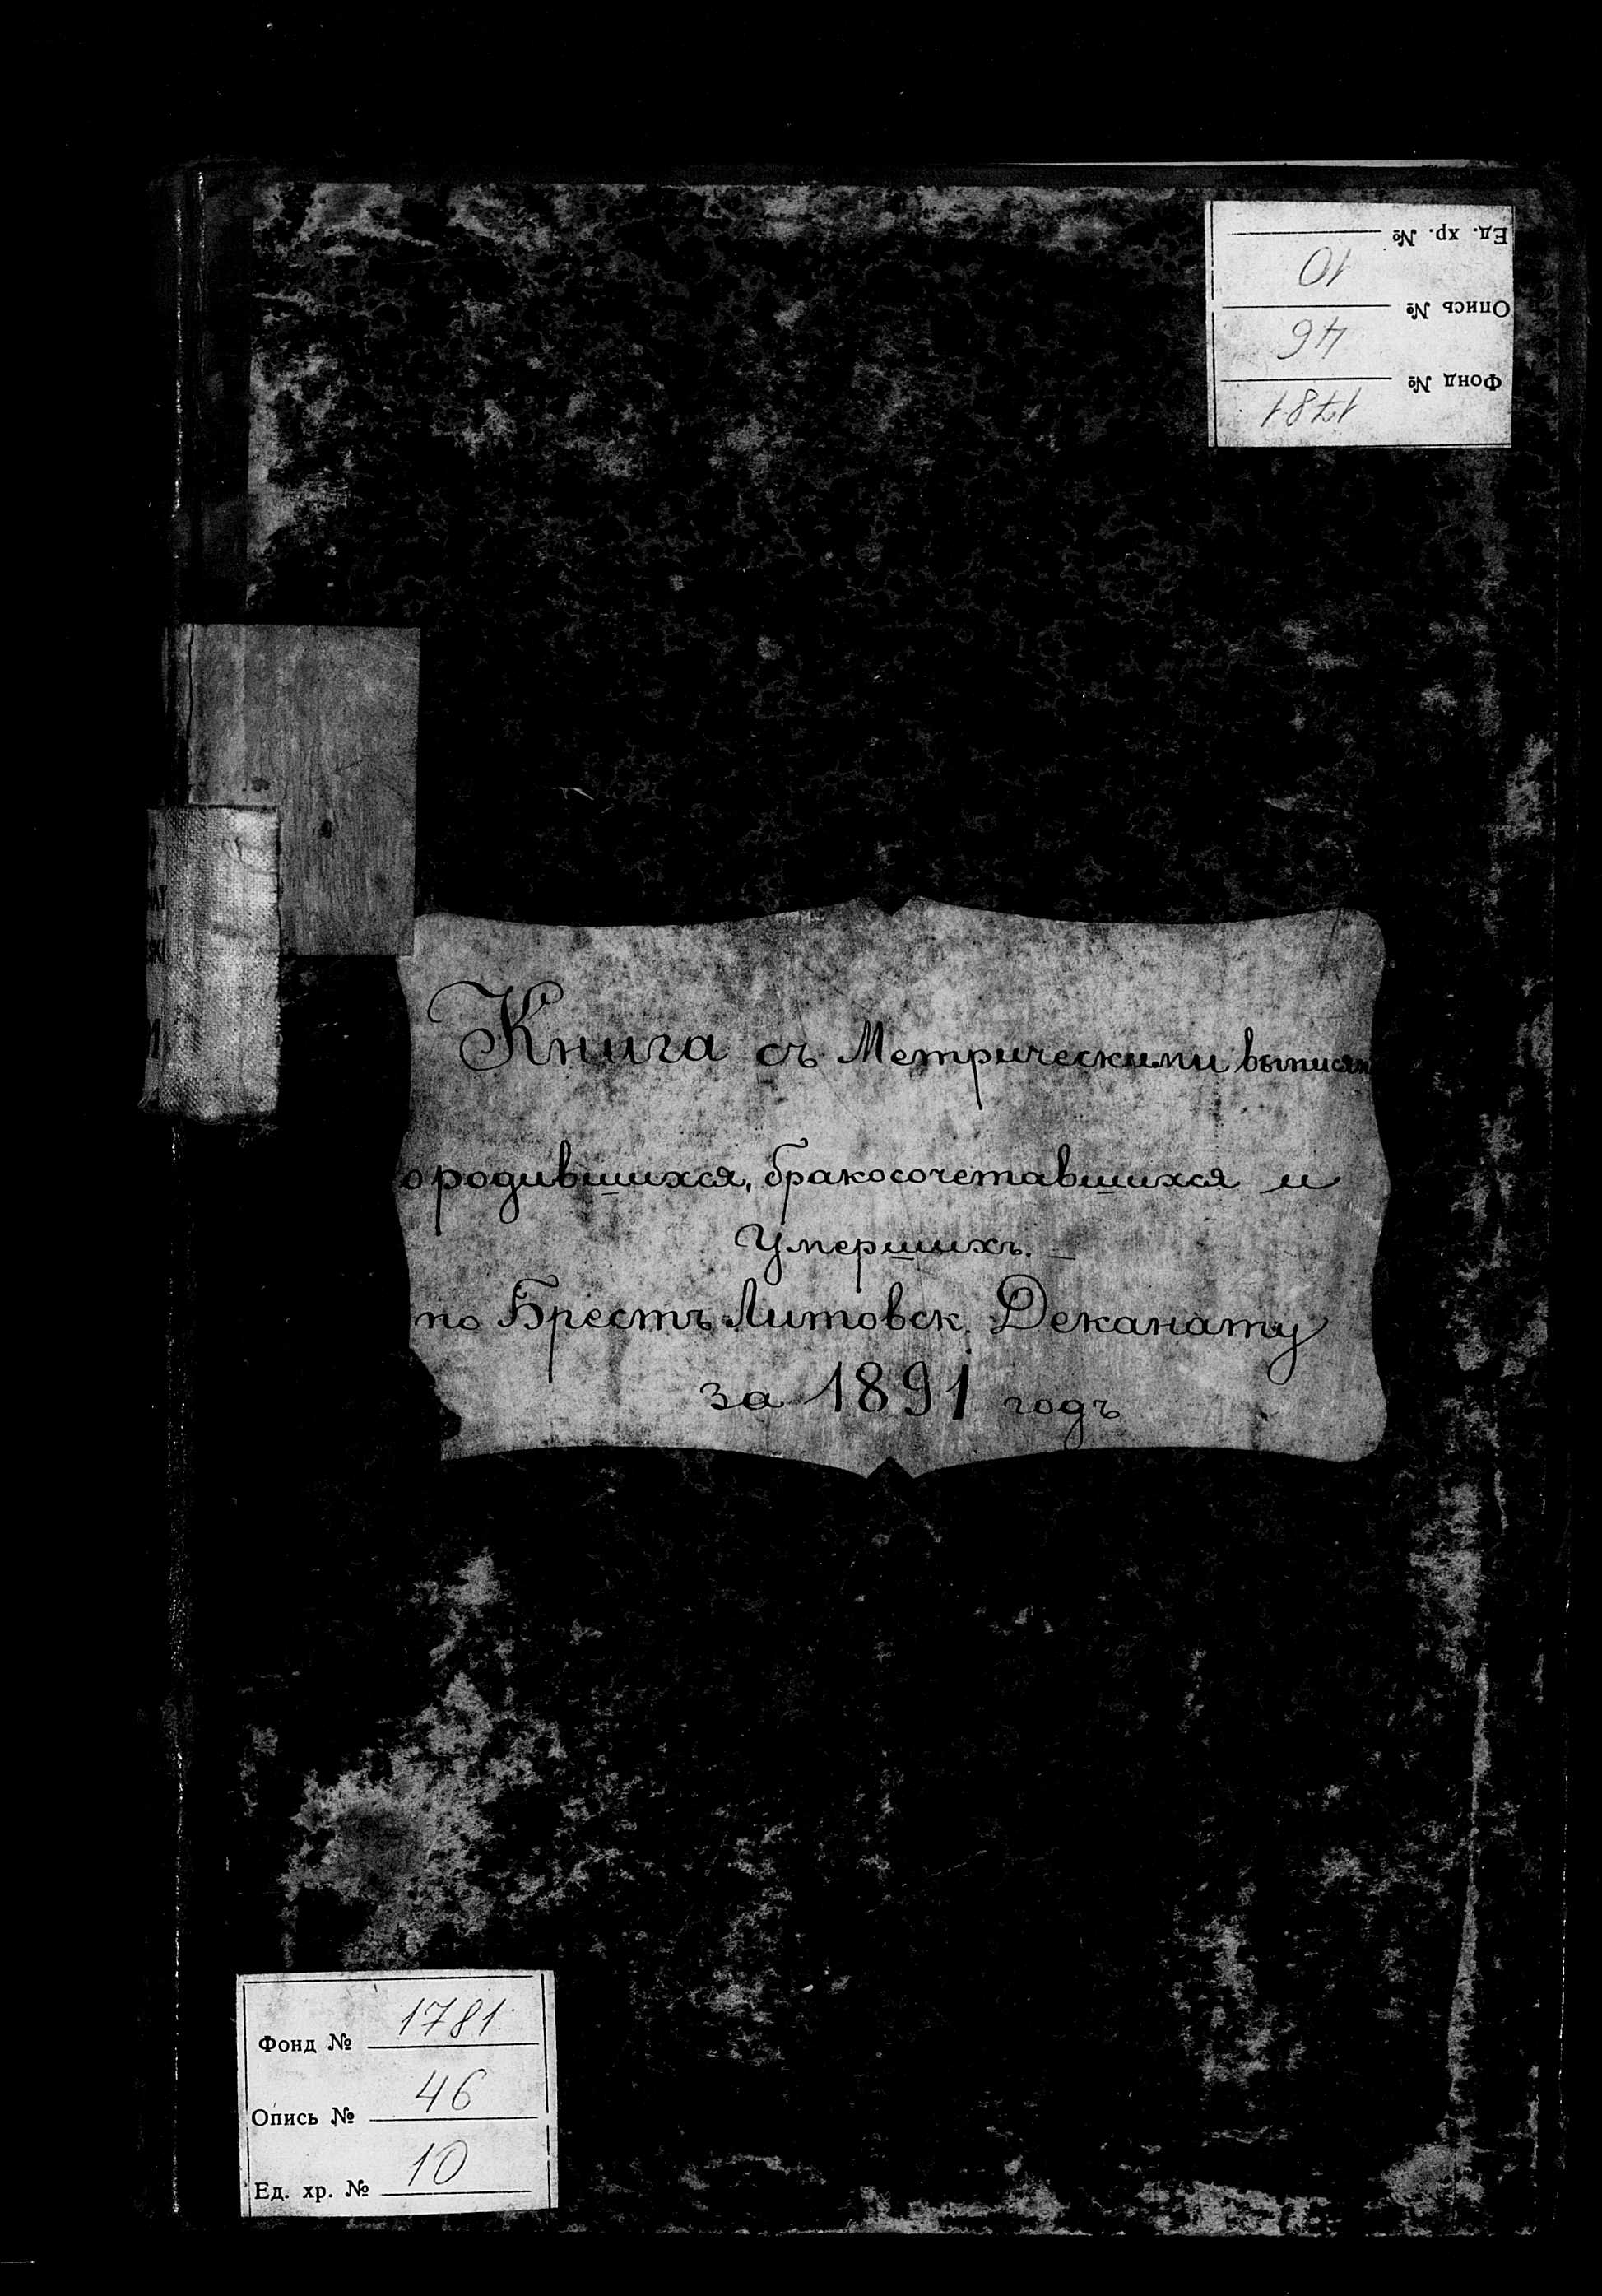 Фонд № 1781
Опись № 46
Ед. хр. № 10
Книга съ Метрическими выписям
о родившихся, бракосочетавшихся и
Умершихъ. —
по Брестъ Литовск. Деканату
за 1891 годъ
Фонд № 1781
Опись № 46
Ед. хр. № 10